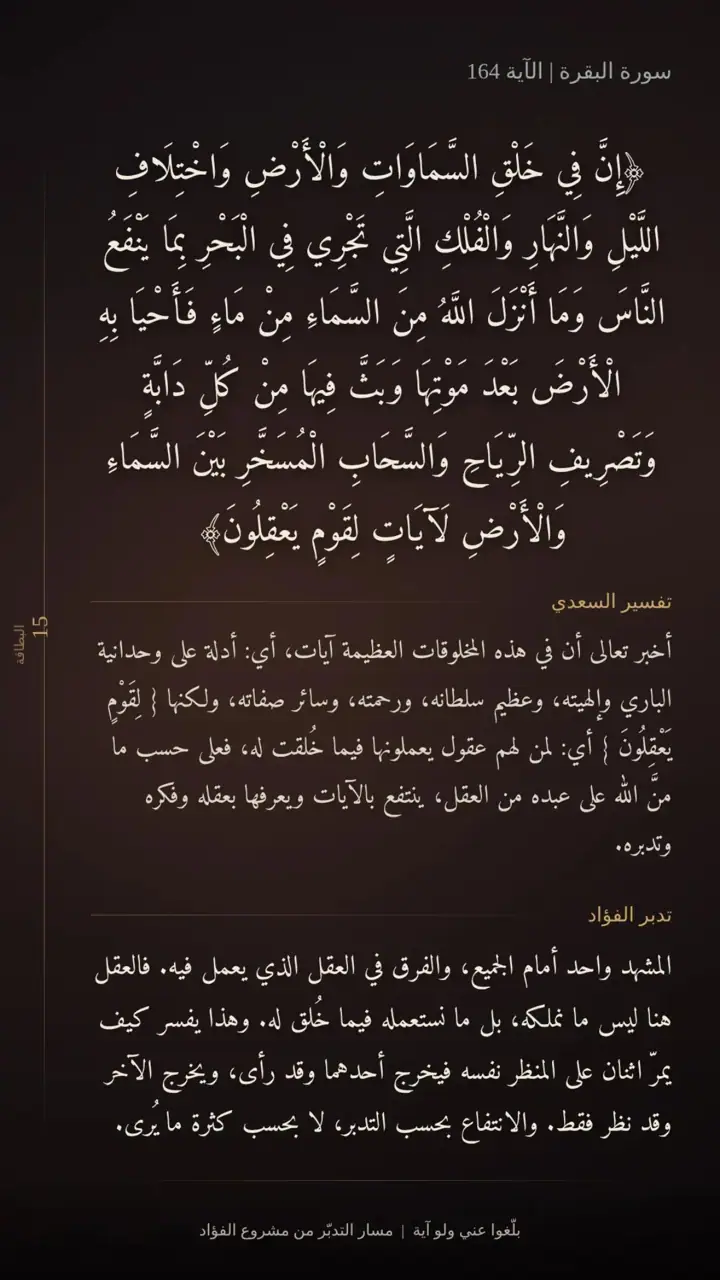 سورة البقرة | الآية 164
﴿إِنَّ فِي خَلْقِ السَّمَاوَاتِ وَالْأَرْضِ وَاخْتِلَافِ
اللَّيْلِ وَالنَّهَارِ وَالْفُلْكِ الَّتِي تَجْرِي فِي الْبَحْرِ بِمَا يَنْفَعُ
النَّاسَ وَمَا أَنْزَلَ اللَّهُ مِنَ السَّمَاءِ مِنْ مَاءٍ فَأَحْيَا بِهِ
الْأَرْضَ بَعْدَ مَوْتِهَا وَبَثَّ فِيهَا مِنْ كُلِّ دَابَّةٍ
وَتَصْرِيفِ الرِّيَاحِ وَالسَّحَابِ الْمُسَخَّرِ بَيْنَ السَّمَاءِ
وَالْأَرْضِ لَآيَاتٍ لِقَوْمٍ يَعْقِلُونَ﴾
تفسير السعدي
أخبر تعالى أن في هذه المخلوقات العظيمة آيات، أي: أدلة على وحدانية
الباري وإلهيته، وعظيم سلطانه، ورحمته، وسائر صفاته، ولكنها { لِقَوْمٍ
يَعْقِلُونَ } أي: لمن لهم عقول يعملونها فيما خُلقت له، فعلى حسب ما
منَّ الله على عبده من العقل، ينتفع بالآيات ويعرفها بعقله وفكره
وتدبره.
تدبر الفؤاد
المشهد واحد أمام الجميع، والفرق في العقل الذي يعمل فيه. فالعقل
هنا ليس ما نملكه، بل ما نستعمله فيما خُلق له. وهذا يفسر كيف
يمرّ اثنان على المنظر نفسه فيخرج أحدهما وقد رأى، ويخرج الآخر
وقد نظر فقط. والانتفاع بحسب التدبر، لا بحسب كثرة ما يُرى.
البطاقة
15
بلّغوا عني ولو آية | مسار التدبّر من مشروع الفؤاد